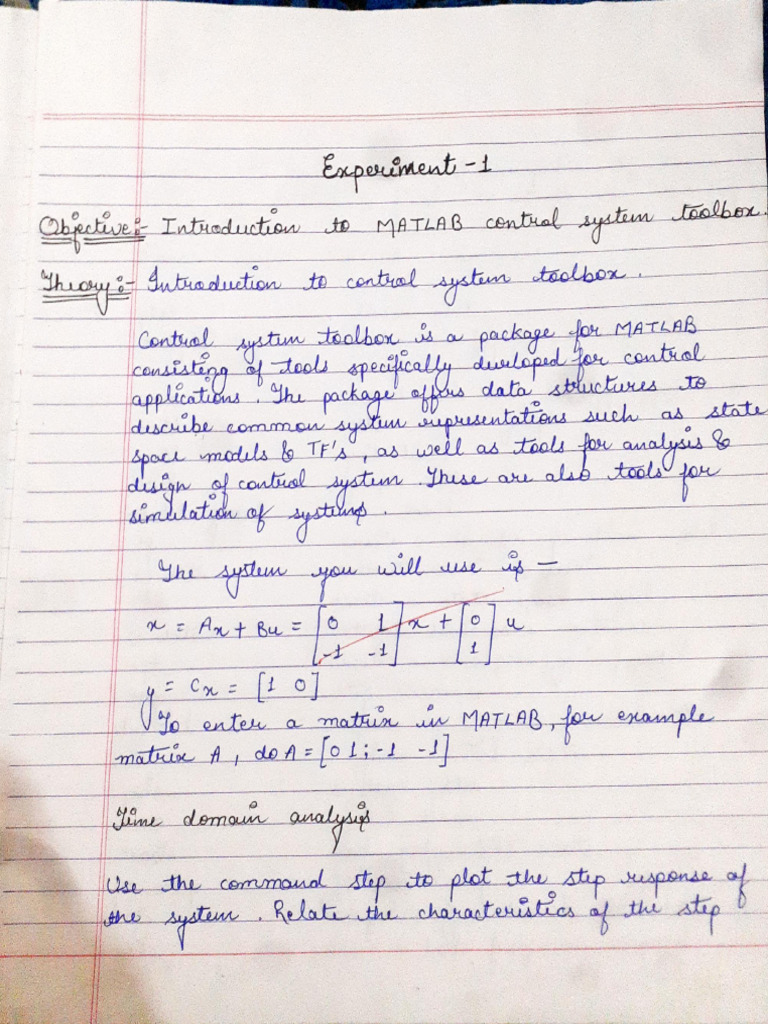 Experiment-1
Objective:- Introduction to MATLAB control system toolbox.
Theory:- Introduction to control system toolbox.
Control system toolbox is a package for MATLAB
consisting of tools specifically developed for control
applications. The package offers data structures to
describe common system representations such as state
space models & TF's, as well as tools for analysis &
design of control system. These are also tools for
simulation of systems.
The system you will use is —
x = Ax + Bu = [0 1; -1 -1] x + [0; 1] u
y = Cx = [1 0]
To enter a matrix in MATLAB, for example
matrix A, do A = [0 1; -1 -1]
Time domain analysis
Use the command step to plot the step response of
the system. Relate the characteristics of the step